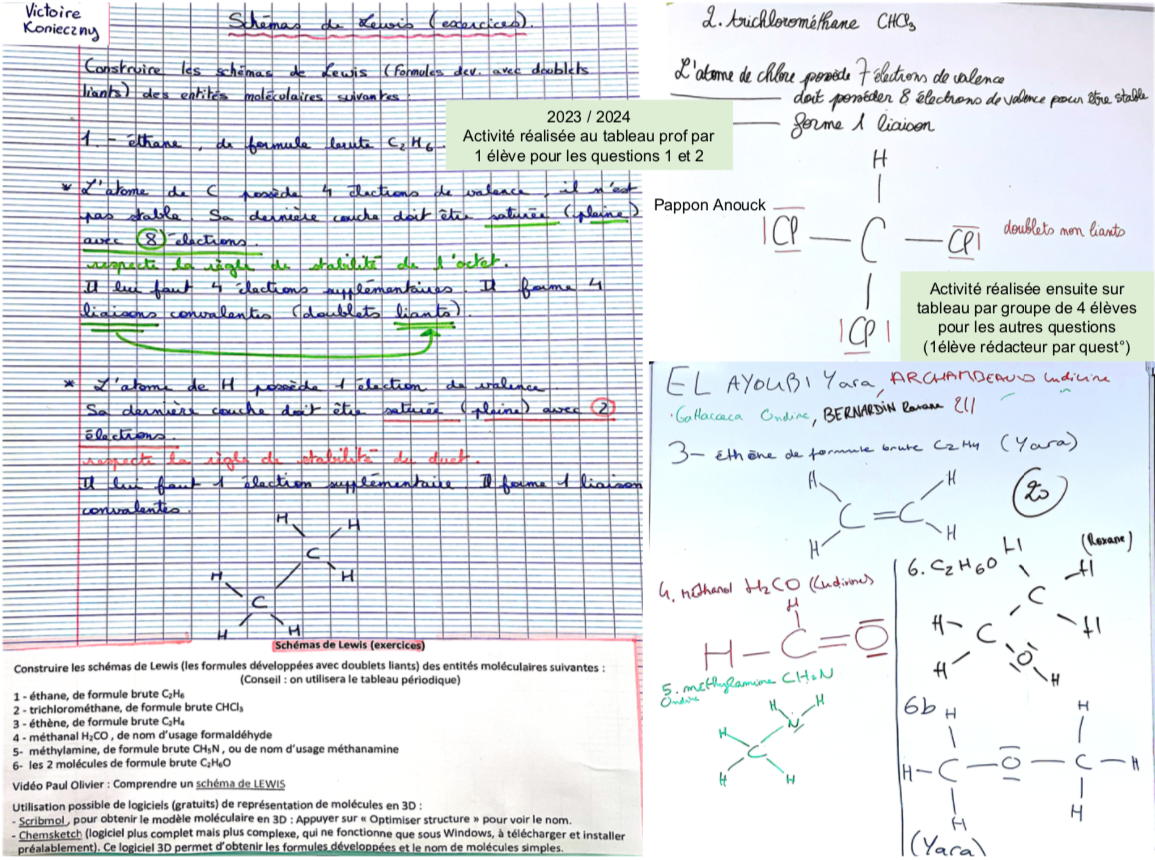 Victoire
Konieczny
Schémas de Lewis (exercices).
Construire les schémas de Lewis (formules dev. avec doublets
liants) des entités moléculaires suivantes :
1. - éthane, de formule brute C₂H₆.
* L'atome de C possède 4 élections de valence, il n'est
pas stable. Sa dernière couche doit être saturée (pleine)
avec 8 élections.
respecte la règle de stabilité de l'octet.
Il lui faut 4 élections supplémentaires. Il forme 4
liaisons convalentes (doublets liants).
* L'atome de H possède 1 élection de valence
Sa dernière couche doit être saturée (pleine) avec 2
élections.
respecte la règle de stabilité du duet.
Il lui faut 1 élection supplémentaire. Il forme 1 liaison
convalentes.
H H
C H
H C
H H
Schémas de Lewis (exercices)
Construire les schémas de Lewis (les formules développées avec doublets liants) des entités moléculaires suivantes :
(Conseil : on utilisera le tableau périodique)
1 - éthane, de formule brute C₂H₆
2 - trichlorométhane, de formule brute CHCl₃
3 - éthène, de formule brute C₂H₄
4 - méthanal H₂CO , de nom d'usage formaldéhyde
5- méthylamine, de formule brute CH₅N , ou de nom d'usage méthanamine
6- les 2 molécules de formule brute C₂H₆O
Vidéo Paul Olivier : Comprendre un schéma de LEWIS
Utilisation possible de logiciels (gratuits) de représentation de molécules en 3D :
- Scribmol , pour obtenir le modèle moléculaire en 3D : Appuyer sur « Optimiser structure » pour voir le nom.
- Chemsketch (logiciel plus complet mais plus complexe, qui ne fonctionne que sous Windows, à télécharger et installer
préalablement). Ce logiciel 3D permet d'obtenir les formules développées et le nom de molécules simples.
2023 / 2024
Activité réalisée au tableau prof par
1 élève pour les questions 1 et 2
2. trichlorométhane CHCl₃
L'atome de chlore possède 7 élections de valence
doit posséder 8 électrons de valence pour être stable
forme 1 liaison
Pappon Anouck
H
Cl C Cl
Cl
doublets non liants
Activité réalisée ensuite sur
tableau par groupe de 4 élèves
pour les autres questions
(1élève rédacteur par quest°)
EL AYOUBI Yara, ARCHAMBEAUD Ludivine
Ondine, BERNARDIN Roxane 211
3- éthène de formule brute C₂H₄ (Yara)
H H
C = C
H H
20
4. méthanol H₂CO (Ludivine)
H
H - C = O
5. méthylamine CH₅N
Ondine
H H
H N
C
H H
6. C₂H₆O (Roxane)
H H
C
H C H
H O
H
6b
H H
H - C - O - C - H
H H
(Yara)